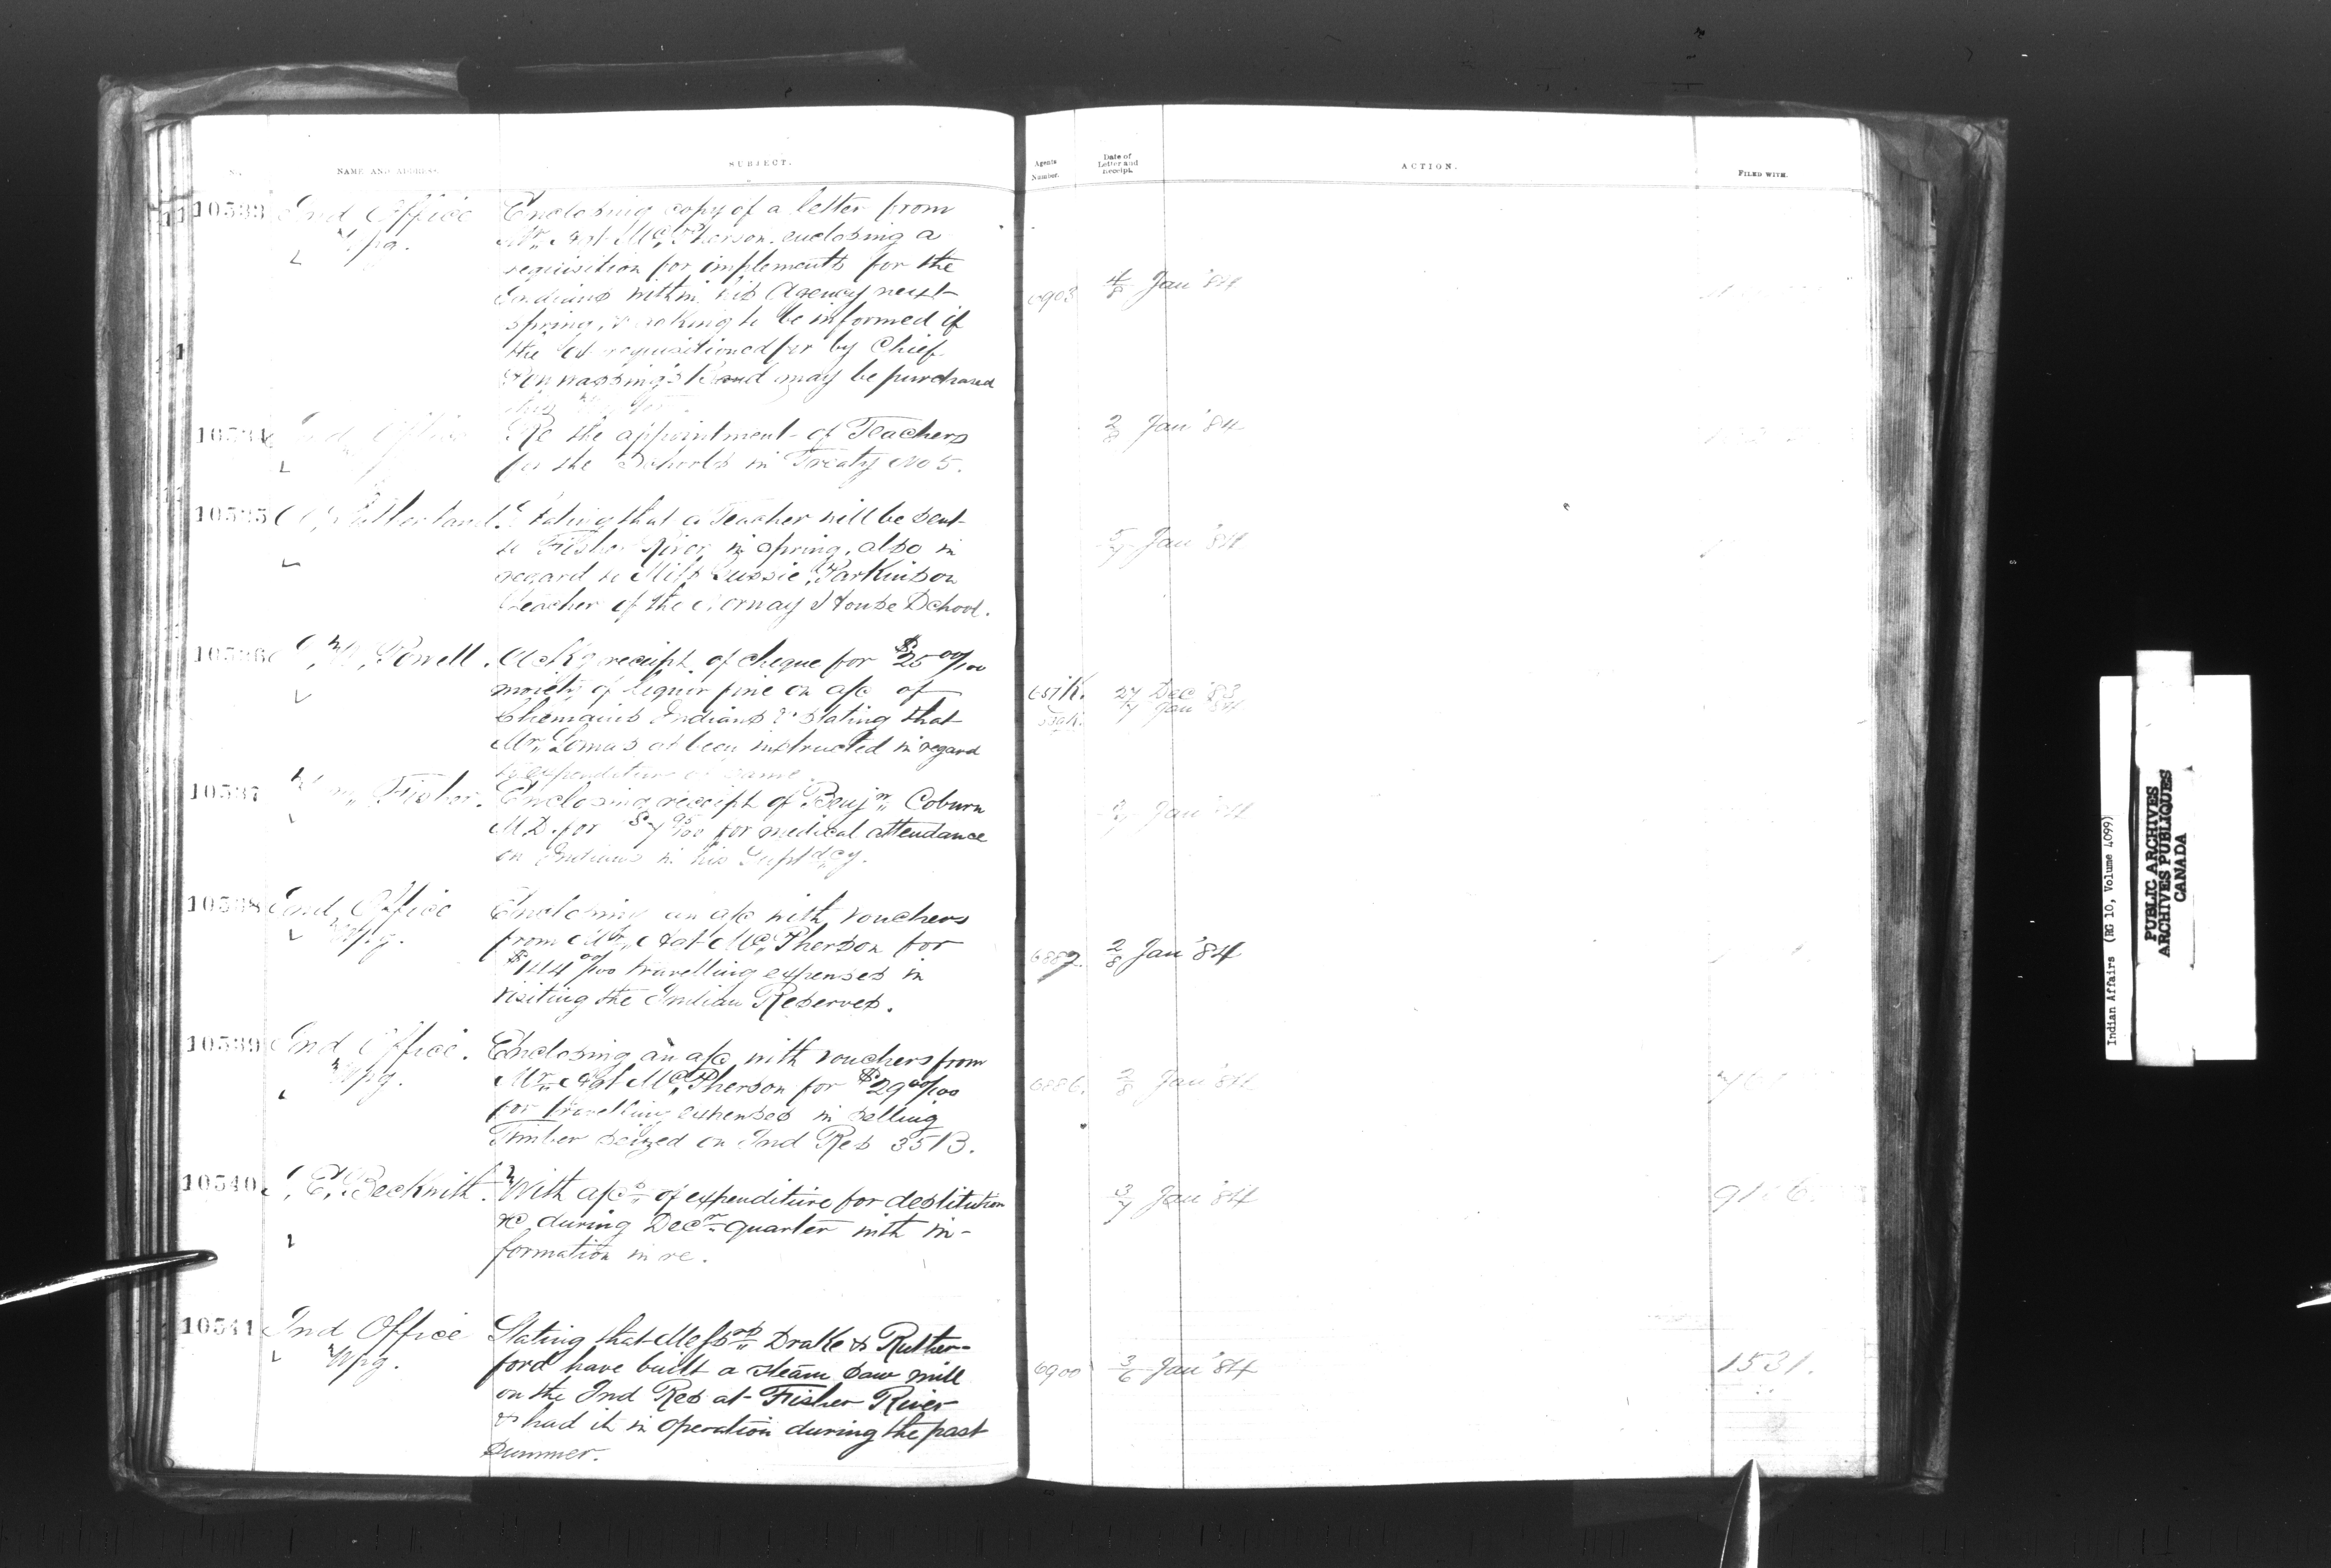 NAME AND ADDRESS.
SUBJECT.
Agents Number.
Date of Letter and Receipt.
ACTION.
FILED WITH.
10533 Ind Office
Wpg.
Enclosing copy of a letter from
Mr. McPherson enclosing a
requisition for implements for the
Indians within his Agency next
spring, & asking to be informed if
the requisitioned for by Chief
Band may be purchased
6903 4/8 Jan '84
10534 Ind Office
Re the appointment of Teachers
for the Schools in Treaty No 5.
2/8 Jan '84
10535 A. Sutherland.
Stating that a Teacher will be sent
to Fisher River in spring, also in
regard to Miss Parkinson
teacher of the Norway House School.
5/7 Jan '84
10536 I. W. Powell.
Ackg receipt of cheque for $25 00/100
moiety of liquor fine on a/c of
Chemainus Indians & stating that
Mr. Lomas as been instructed in regard
to expenditure of same.
27 Dec '83
7 Jan '84
10537 Wm Fisher.
Enclosing receipt of Benjn. Coburn
M.D. for $7 95/100 for medical attendance
on Indians in his Suptdcy.
Jan '84
10538 Ind Office
Wpg.
Enclosing an a/c with vouchers
from Mr. McPherson for
$144 00/100 travelling expenses in
visiting the Indian Reserves.
6887 2/8 Jan '84
10539 Ind Office.
Wpg.
Enclosing an a/c with vouchers from
Mr. McPherson for $29 00/100
for travelling expenses in selling
Timber seized on Ind Res 35B.
6886. 2/8 Jan '84
10540 J. E. Beckwith.
With a/cs of expenditure for destitution
&c during Decr quarter with in-
formation in re.
3/7 Jan '84
10541 Ind Office
Wpg.
Stating that Messrs Drake & Ruther-
ford have built a steam saw mill
on the Ind Res at Fisher River
& had it in operation during the past
summer.
6900 3/6 Jan '84
1531.
Indian Affairs (RG 10, Volume 4099)
PUBLIC ARCHIVES
ARCHIVES PUBLIQUES
CANADA